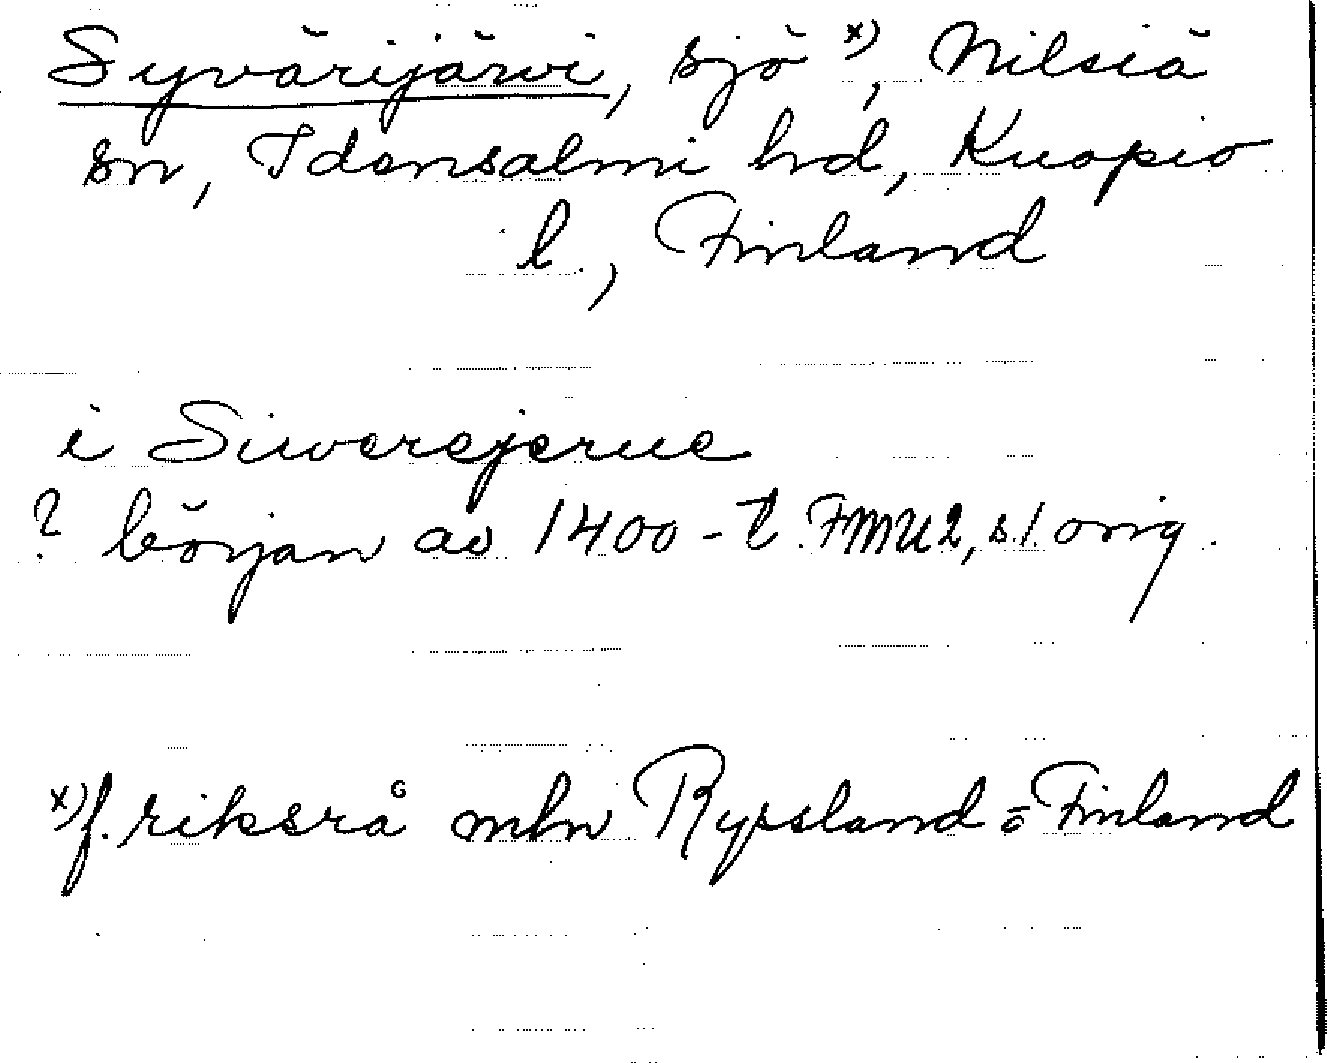 Syvärijärvi, sjö x), Nilsiä
sn, Idensalmi hd, Kuopio
l., Finland
i Siwerejerue
? början av 1400-t. FMU2, s.1 orig.
x) f. riksrå mln Ryssland o Finland